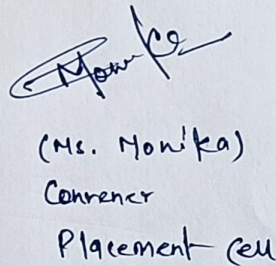 Monika
(Ms. Monika)
Convener
Placement Cell